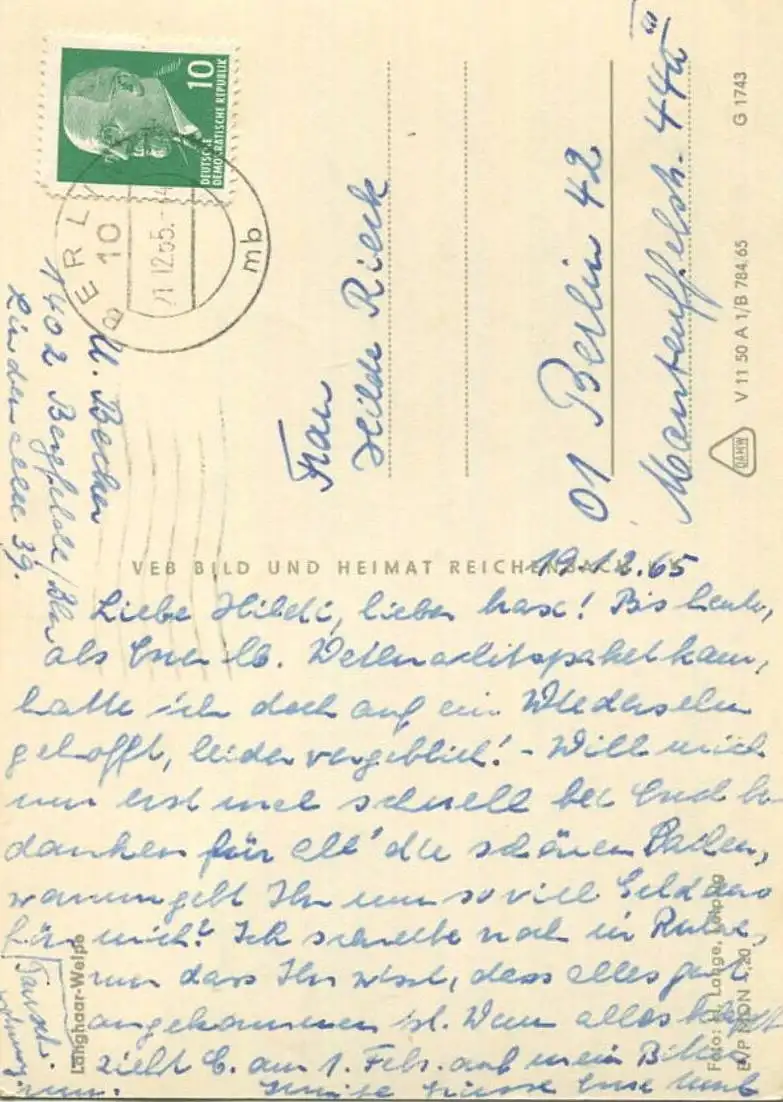 10
DEUTSCHE
DEMOKRATISCHE REPUBLIK
BERL
10
21.12.65.
mb
U. Becker
1402 Bergfelde/Bln
Lindenallee 39.
Frau
Hilde Rieck
01 Berlin 42
Manteuffelstr. 44a III
G 1743
V 11 50 A 1/B 784.65
DAMW
VEB BILD UND HEIMAT REICHENBACH
19.12.65
Liebe Hilde, lieber Max! Bis heute,
als Euer lb. Weihnachtspaket kam,
hatte ich doch auf ein Wiedersehn
gehofft, leider vergeblich! - Will mich
nun erst mal schnell bei Euch be
danken für all' die schönen Sachen,
warum gebt Ihr nur so viel Geld aus
für mich? Ich schreibe noch in Ruhe,
nur dass Ihr wisst, dass alles gut
angekommen ist. Wenn alles klappt
zieht E. am 1. Febr. auf mein Bitten
um. Innige Grüsse Eure
Tausch
wohnung
Langhaar-Welpe
Foto: H. Lange, Leipzig
E/P MDN 0,20